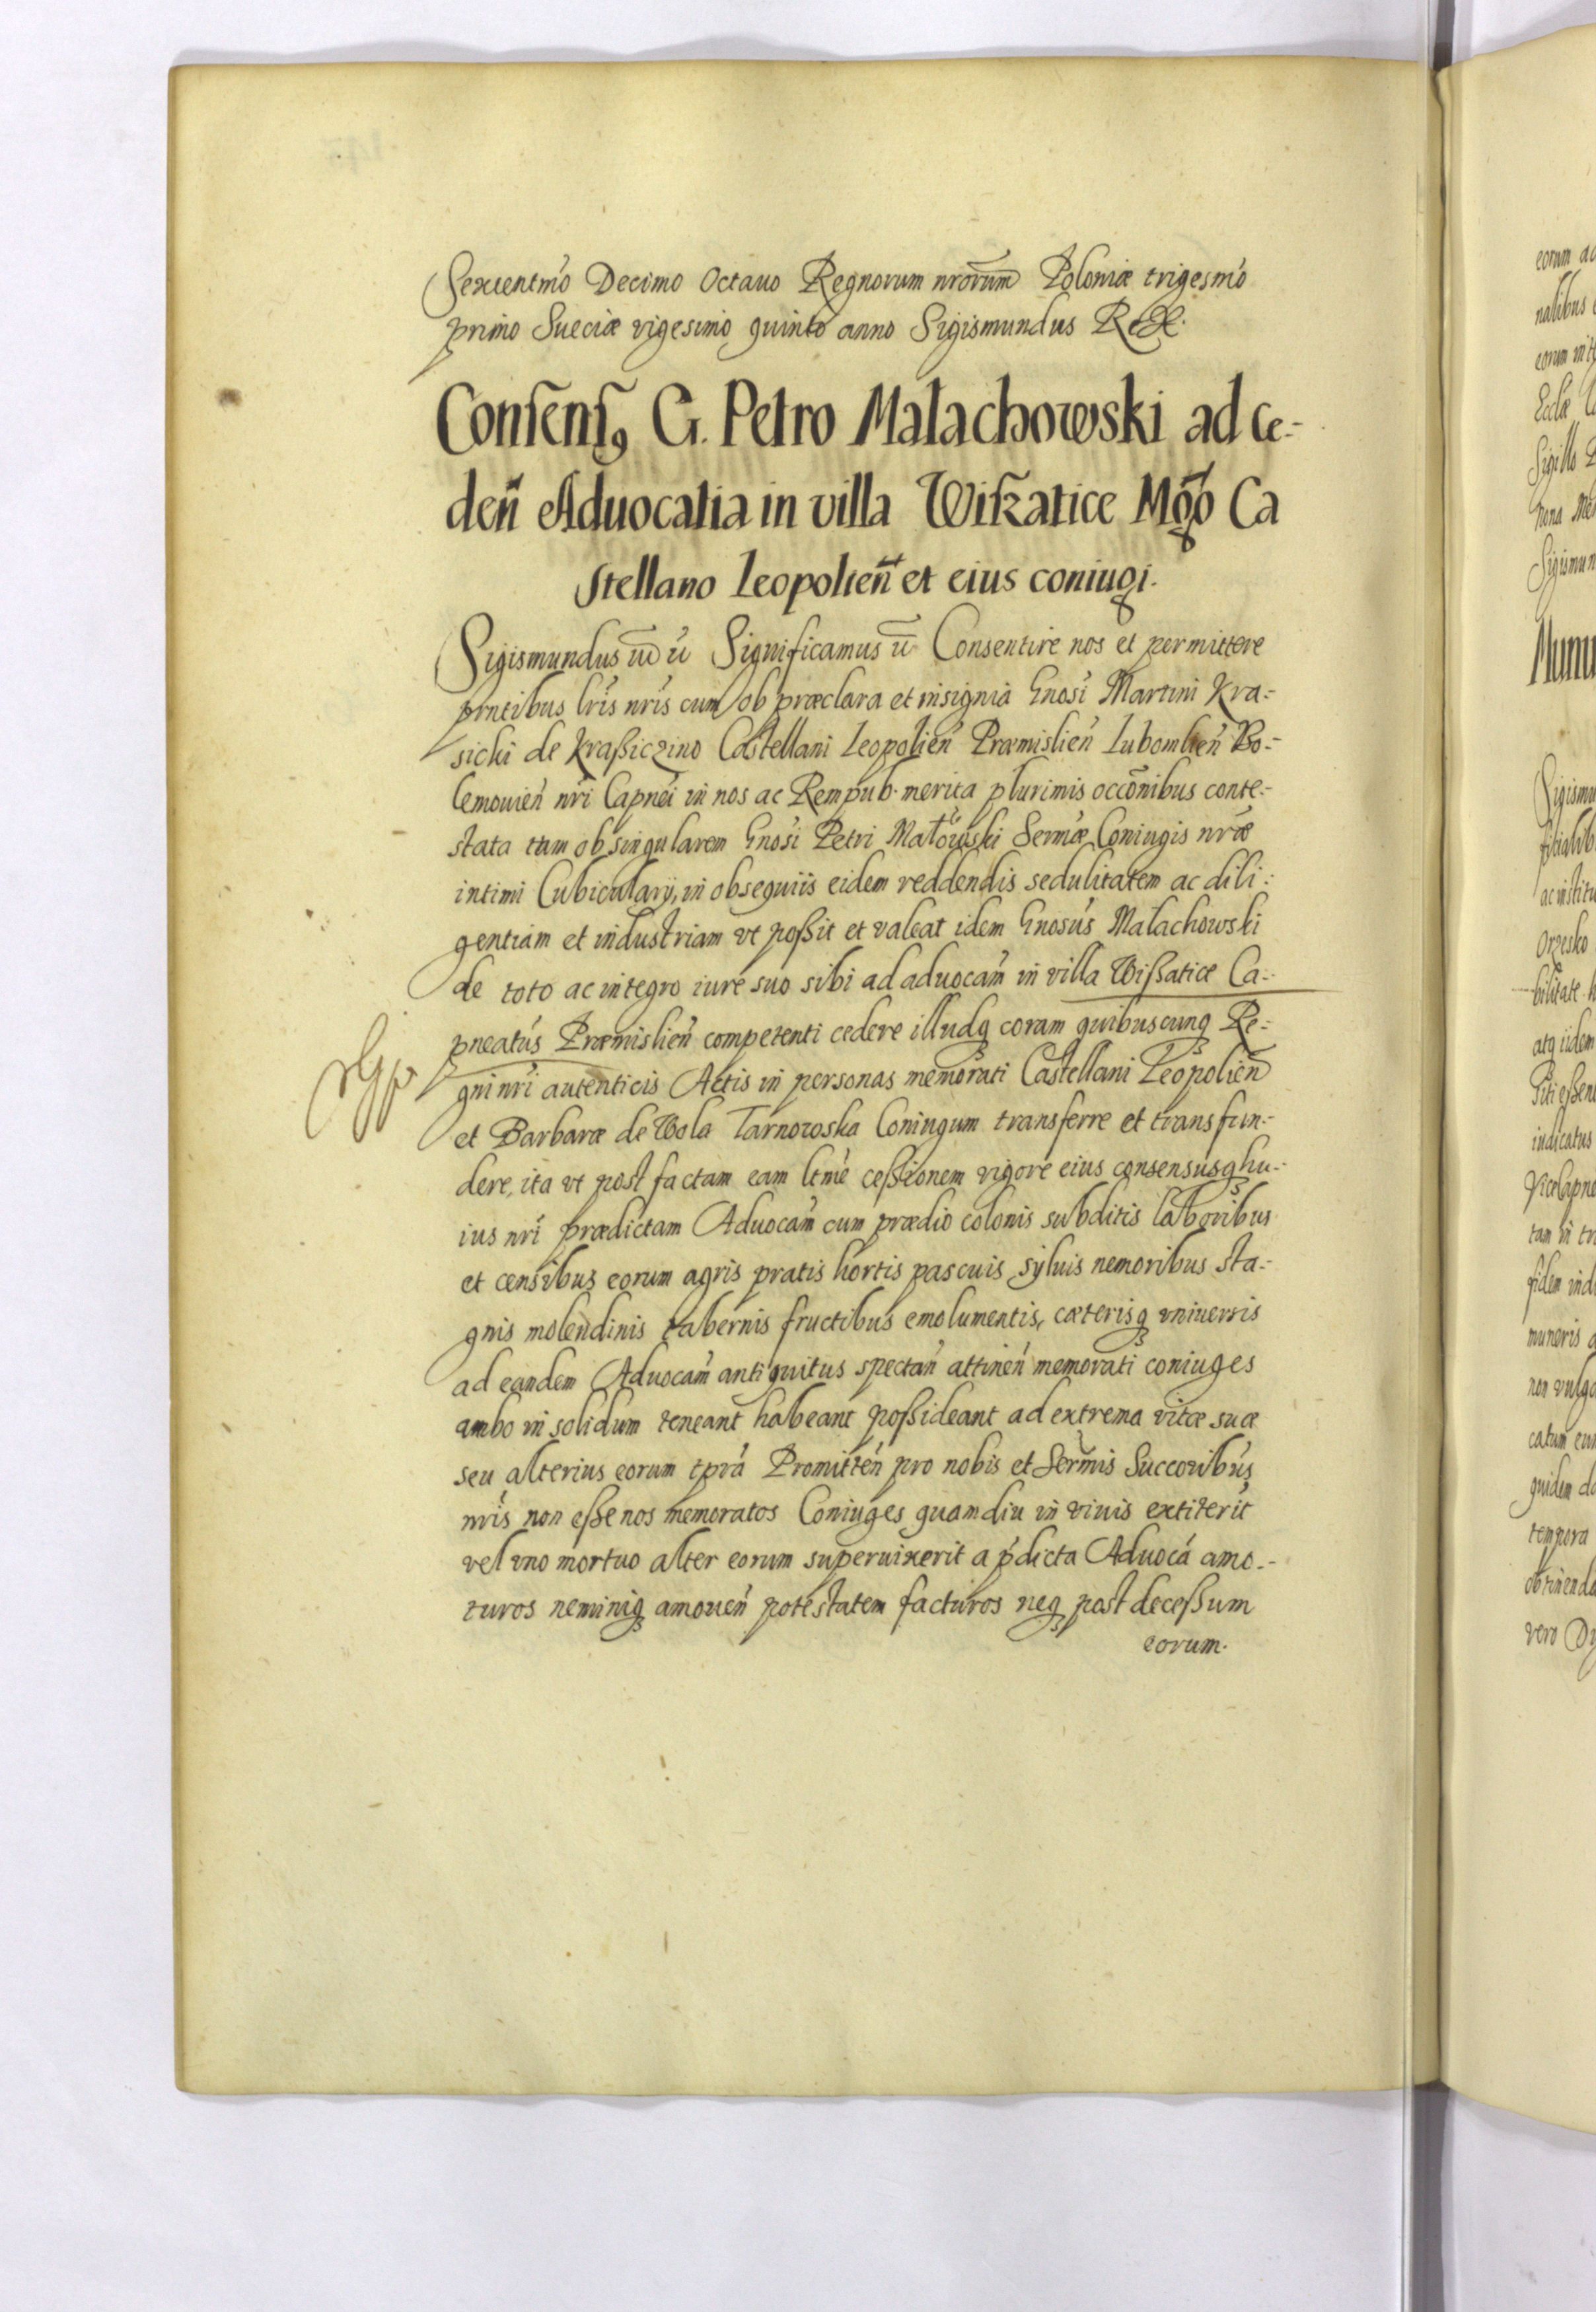 Sexcentmo Decimo Octauo Regnorum nrorum Poloniæ trigesmo
primo Sueciæ vigesimo quinto anno Sigismundus Rex.
Consens9 G. Petro Malachowski ad ce-
den Aduocatia in villa Wiszatice Mgo Ca
stellano Leopolien et eius coniugi.
Sigismundus Significamus Consentire nos et permittere
pntibus lris nris cum ob præclara et insignia Gnosi Martini Kra-
sicki de Kraßiczino Castellani Leopolien Præmislien Lubomlien Bo-
lemouien nri Capnei in nos ac Rempub. merita plurimis occonibus conte-
stata tum ob singularem Gnosi Petri Malowski Sermæ Coniugis nræ
intimi Cubicularij, in obsequiis eidem reddendis sedulitatem ac dili-
gentiam et industriam vt poßit et valeat idem Gnosus Malachowski
de toto ac integro iure suo sibi ad aduocam in villa Wißatice Ca-
pneatus Præmislien competenti cedere illudq coram quibuscunq Re-
gni nri autenticis Actis in personas memorati Castellani Leopolien
et Barbaræ de Wola Tarnowska Coniugum transferre et transfun-
dere, ita vt post factam eam ltme ceßionem vigore eius consensusq hu-
ius nri prædictam Aduocam cum prædio colonis subditis laboribus
et censibus eorum agris pratis hortis pascuis syluis nemoribus sta-
gnis molendinis tabernis fructibus emolumentis, cæterisq vniuersis
ad eandem Aduocam antiquitus spectan attinen memorati coniuges
ambo in solidum teneant habeant poßideant ad extrema vitæ suæ
seu alterius eorum tpra Promitten pro nobis et Sermis Succoribus
nris non eße nos memoratos Coniuges quamdiu in viuis extiterit
vel vno mortuo alter eorum superuixerit a pdicta Aduoca amo-
turos neminiq amouen potestatem facturos neq post deceßum
eorum.